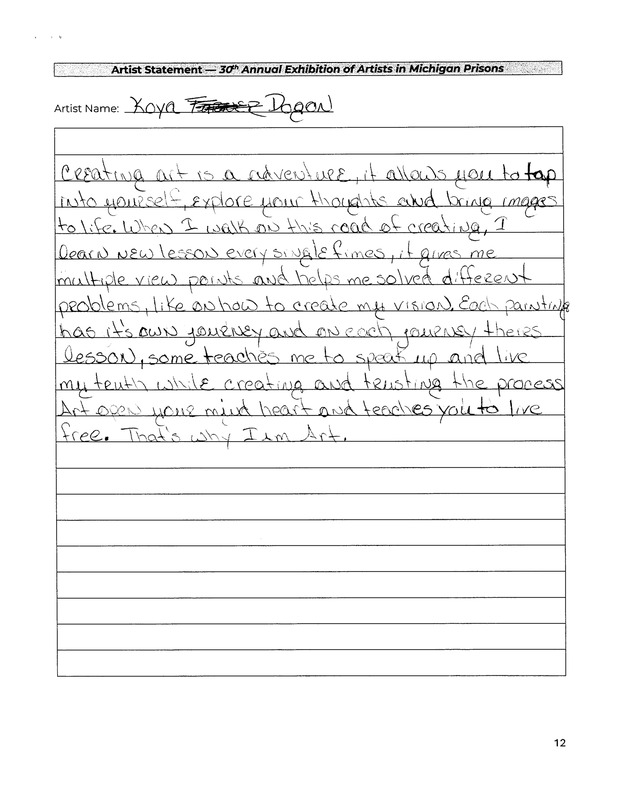 Artist Statement — 30th Annual Exhibition of Artists in Michigan Prisons
Artist Name: Koya Dogan
Creating art is a adventure, it allows you to tap
into yourself, explore your thoughts and bring images
to life. When I walk on this road of creating, I
learn new lesson every single times, it gives me
multiple view points and helps me solved different
problems, like on how to create my vision. Each painting
has it's own journey and on each journey theres
lesson, some teaches me to speak up and live
my truth while creating and trusting the process
Art open your mind heart and teaches you to live
free. That's why I'm Art.
12